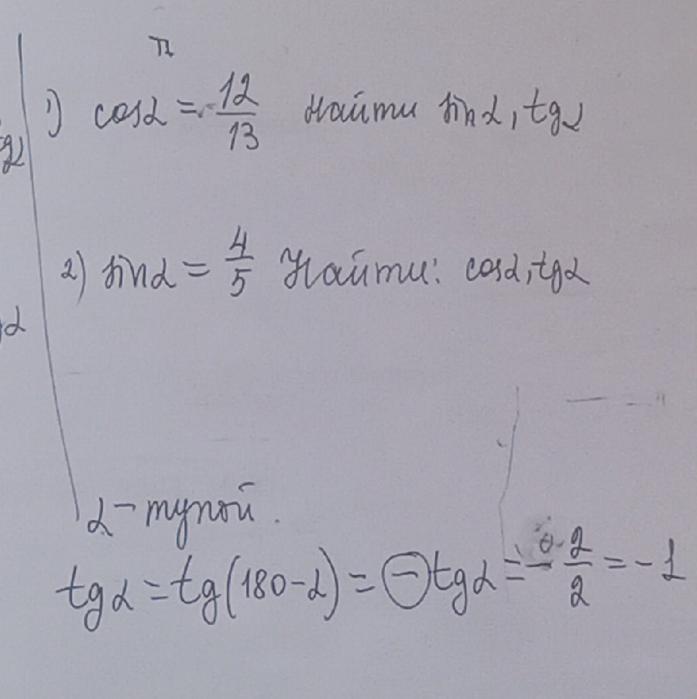 π
1) cosα = -12/13 Найти sinα, tgα
gα
2) sinα = 4/5 Найти: cosα, tgα
α
α - тупой.
tgα = tg(180-α) = -tgα = -2/2 = -1